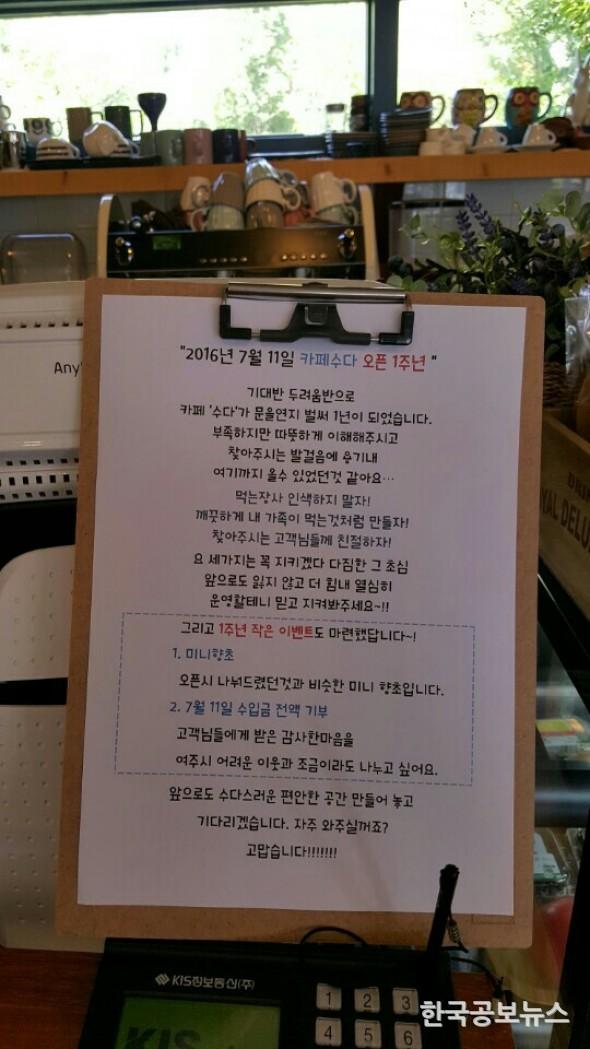 "2016년 7월 11일 카페수다 오픈 1주년 "
기대반 두려움반으로
카페 '수다'가 문을연지 벌써 1년이 되었습니다.
부족하지만 따뜻하게 이해해주시고
찾아주시는 발걸음에 용기내
여기까지 올수 있었던것 같아요...
먹는장사 인색하지 말자!
깨끗하게 내 가족이 먹는것처럼 만들자!
찾아주시는 고객님들께 친절하자!
요 세가지는 꼭 지키겠다 다짐한 그 초심
앞으로도 잃지 않고 더 힘내 열심히
운영할테니 믿고 지켜봐주세요~!!
그리고 1주년 작은 이벤트도 마련했답니다~!
1. 미니향초
오픈시 나눠드렸던것과 비슷한 미니 향초입니다.
2. 7월 11일 수입금 전액 기부
고객님들에게 받은 감사한마음을
여주시 어려운 이웃과 조금이라도 나누고 싶어요.
앞으로도 수다스러운 편안한 공간 만들어 놓고
기다리겠습니다. 자주 와주실꺼죠?
고맙습니다!!!!!!!
Any
DELU
KIS정보통신(주)
KIS
1 2 3
4 5 6
한국공보뉴스